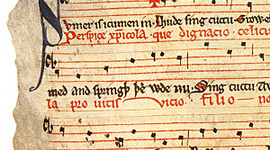 Svmer is icumen in. Lhude sing cuccu. Growe
Perspice xpicola. que dignacio. celicus
med and springþ þe wde nu. Sing cuccu
la pro uitis vicio. filio